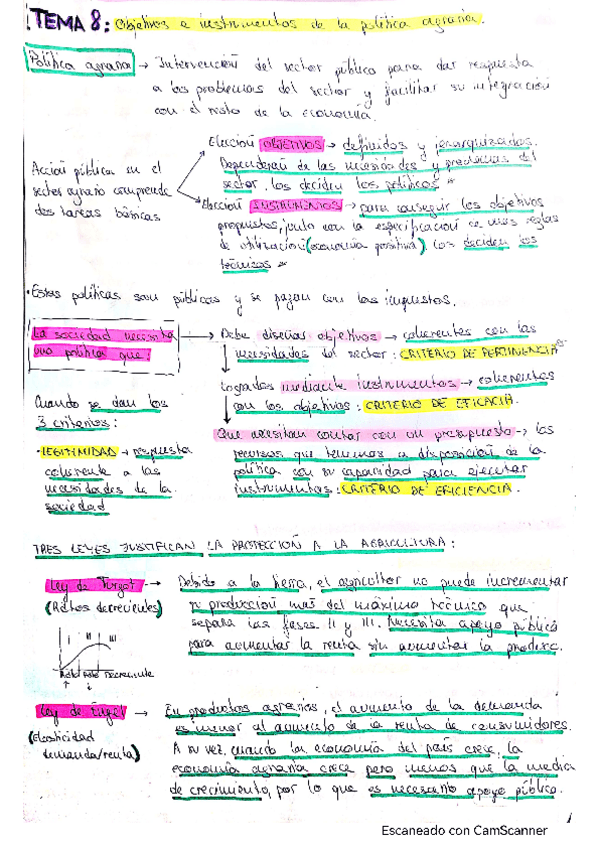 TEMA 8: Objetivos e instrumentos de la política agraria.
Política agraria → Intervención del sector público para dar respuesta
a los problemas del sector y facilitar su integración
con el resto de la economía.
Acción pública en el
sector agrario comprende
dos tareas básicas
Elección OBJETIVOS → definidos y jerarquizados.
Dependerán de las necesidades y problemas del
sector. Los deciden los políticos *
Elección INSTRUMENTOS → para conseguir los objetivos
propuestos, junto con la especificación de unas reglas
de utilización (economía positiva). Los deciden los
técnicos *
·Estas políticas son públicas y se pagan con los impuestos.
La sociedad necesita
una política que:
→ Debe diseñar objetivos → coherentes con las
necesidades del sector: CRITERIO DE PERTINENCIA
Logrados mediante instrumentos → coherentes
con los objetivos: CRITERIO DE EFICACIA.
Que necesitan contar con un presupuesto → los
recursos que tenemos a disposición de la
política con su capacidad para ejecutar
instrumentos: CRITERIO DE EFICIENCIA.
Cuando se dan los
3 criterios:
·LEGITIMIDAD → respuesta
coherente a las
necesidades de la
sociedad
TRES LEYES JUSTIFICAN LA PROTECCIÓN A LA AGRICULTURA:
Ley de Turgot →
(Rdtos decrecientes)
I II III
Debido a la tierra, el agricultor no puede incrementar
su producción más del máximo técnico que
separa las fases II y III. Necesita apoyo público
para aumentar la renta sin aumentar la producc.
Ley de Engel →
(Elasticidad
demanda/renta)
En productos agrarios, el aumento de la demanda
es menor al aumento de la renta de consumidores.
A su vez, cuando la economía del país crece, la
economía agraria crece pero menos que la media
de crecimiento, por lo que es necesario apoyo público.
1
Escaneado con CamScanner